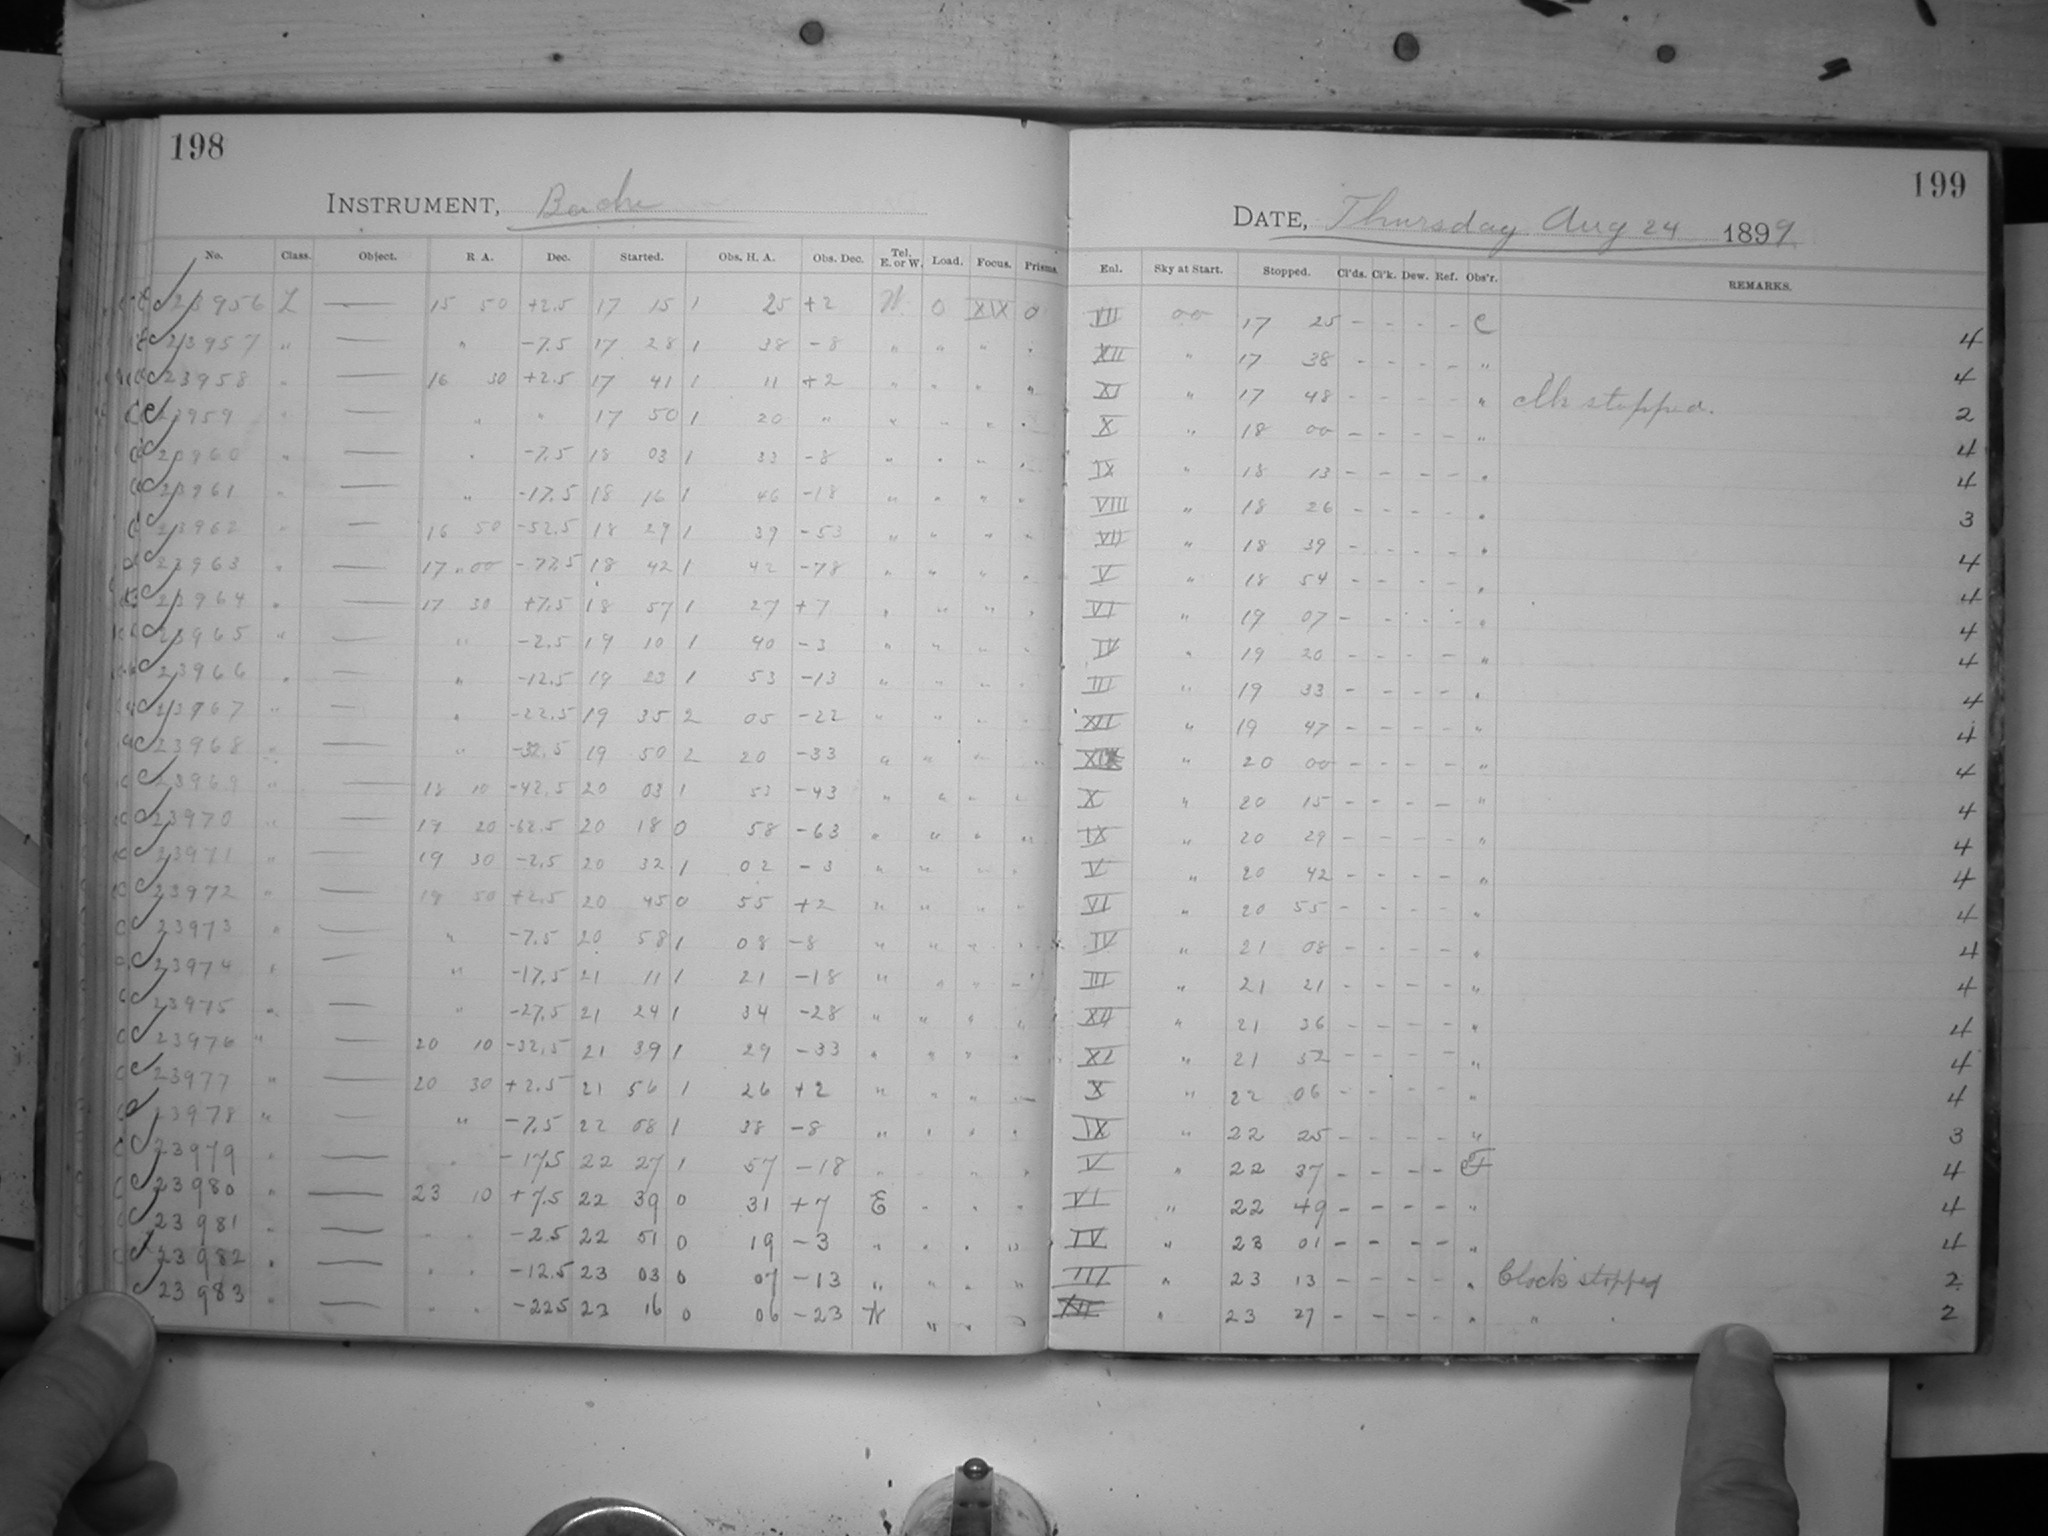 198
INSTRUMENT, Bache
No. Class. Object. R. A. Dec. Started. Obs. H. A. Obs. Dec. Tel. E. or W. Load. Focus. Prisms.
C 23956 L — 15 50 +2.5 17 15 1 25 +2 W 0 XIX 0
C 23957 " — " -7.5 17 28 1 38 -8 " " " "
C 23958 " — 16 30 +2.5 17 41 1 11 +2 " " " "
C 23959 " — " " 17 50 1 20 " " " " "
C 23960 " — " -7.5 18 03 1 33 -8 " " " "
C 23961 " — " -17.5 18 16 1 46 -18 " " " "
C 23962 " — 16 50 -52.5 18 29 1 39 -53 " " " "
C 23963 " — 17 00 -77.5 18 42 1 42 -78 " " " "
C 23964 " — 17 30 +7.5 18 57 1 27 +7 " " " "
C 23965 " — " -2.5 19 10 1 40 -3 " " " "
C 23966 " — " -12.5 19 23 1 53 -13 " " " "
C 23967 " — " -22.5 19 35 2 05 -22 " " " "
C 23968 " — " -32.5 19 50 2 20 -33 " " " "
C 23969 " — 18 10 -42.5 20 03 1 53 -43 " " " "
C 23970 " — 19 20 -62.5 20 18 0 58 -63 " " " "
C 23971 " — 19 30 -2.5 20 32 1 02 -3 " " " "
C 23972 " — 19 50 +2.5 20 45 0 55 +2 " " " "
C 23973 " — " -7.5 20 58 1 08 -8 " " " "
C 23974 " — " -17.5 21 11 1 21 -18 " " " "
C 23975 " — " -27.5 21 24 1 34 -28 " " " "
C 23976 " — 20 10 -32.5 21 39 1 29 -33 " " " "
C 23977 " — 20 30 +2.5 21 56 1 26 +2 " " " "
C 23978 " — " -7.5 22 08 1 38 -8 " " " "
C 23979 " — " -17.5 22 27 1 57 -18 " " " "
C 23980 " — 23 10 +7.5 22 39 0 31 +7 E " " "
C 23981 " — " " -2.5 22 51 0 19 -3 " " " "
C 23982 " — " " -12.5 23 03 0 07 -13 " " " "
C 23983 " — " " -22.5 23 16 0 06 -23 W " " "
199
DATE, Thursday Aug 24 1899
Enl. Sky at Start. Stopped. Cl'ds. Cl'k. Dew. Ref. Obs'r. REMARKS.
VII 00 17 25 - - - - C 4
XII " 17 38 - - - - " 4
XI " 17 48 - - - - " Clk stopped. 2
X " 18 00 - - - - " 4
IX " 18 13 - - - - " 4
VIII " 18 26 - - - - " 3
VII " 18 39 - - - - " 4
V " 18 54 - - - - " 4
VI " 19 07 - - - - " 4
IV " 19 20 - - - - " 4
III " 19 33 - - - - " 4
XII " 19 47 - - - - " 4
" 20 00 - - - - " 4
X " 20 15 - - - - " 4
IX " 20 29 - - - - " 4
V " 20 42 - - - - " 4
VI " 20 55 - - - - " 4
IV " 21 08 - - - - " 4
III " 21 21 - - - - " 4
XII " 21 36 - - - - " 4
XI " 21 52 - - - - " 4
X " 22 06 - - - - " 4
IX " 22 25 - - - - " 3
V " 22 37 - - - - 4
VI " 22 49 - - - - " 4
IV " 23 01 - - - - " 4
III " 23 13 - - - - " Clock stopped 2
XII " 23 27 - - - - " " " 2